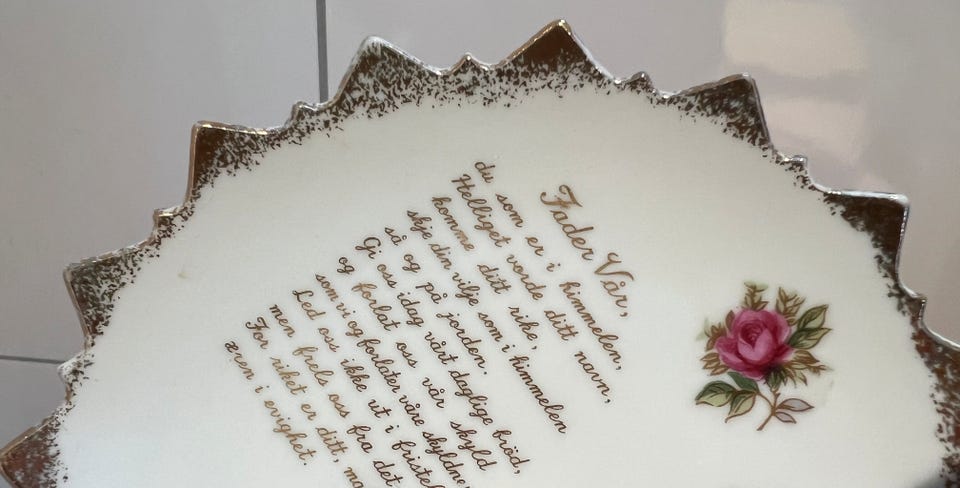 Fader Vår,
du som er i himmelen,
Helliget vorde ditt navn,
komme ditt rike,
skje din vilje som i himmelen
så og på jorden.
Gi oss idag vårt daglige bröd,
og forlat oss vår skyld
som vi og forlater våre
Led oss ikke ut i
men frels oss fra det
For riket er ditt,
æren i evighet.